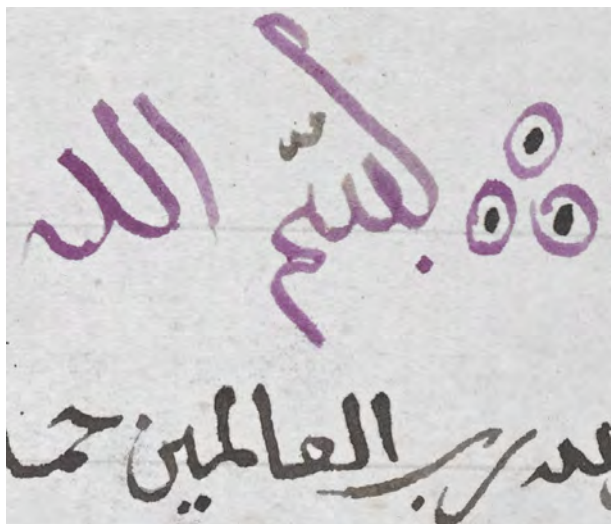 بسم الله
لله رب العالمين حمد